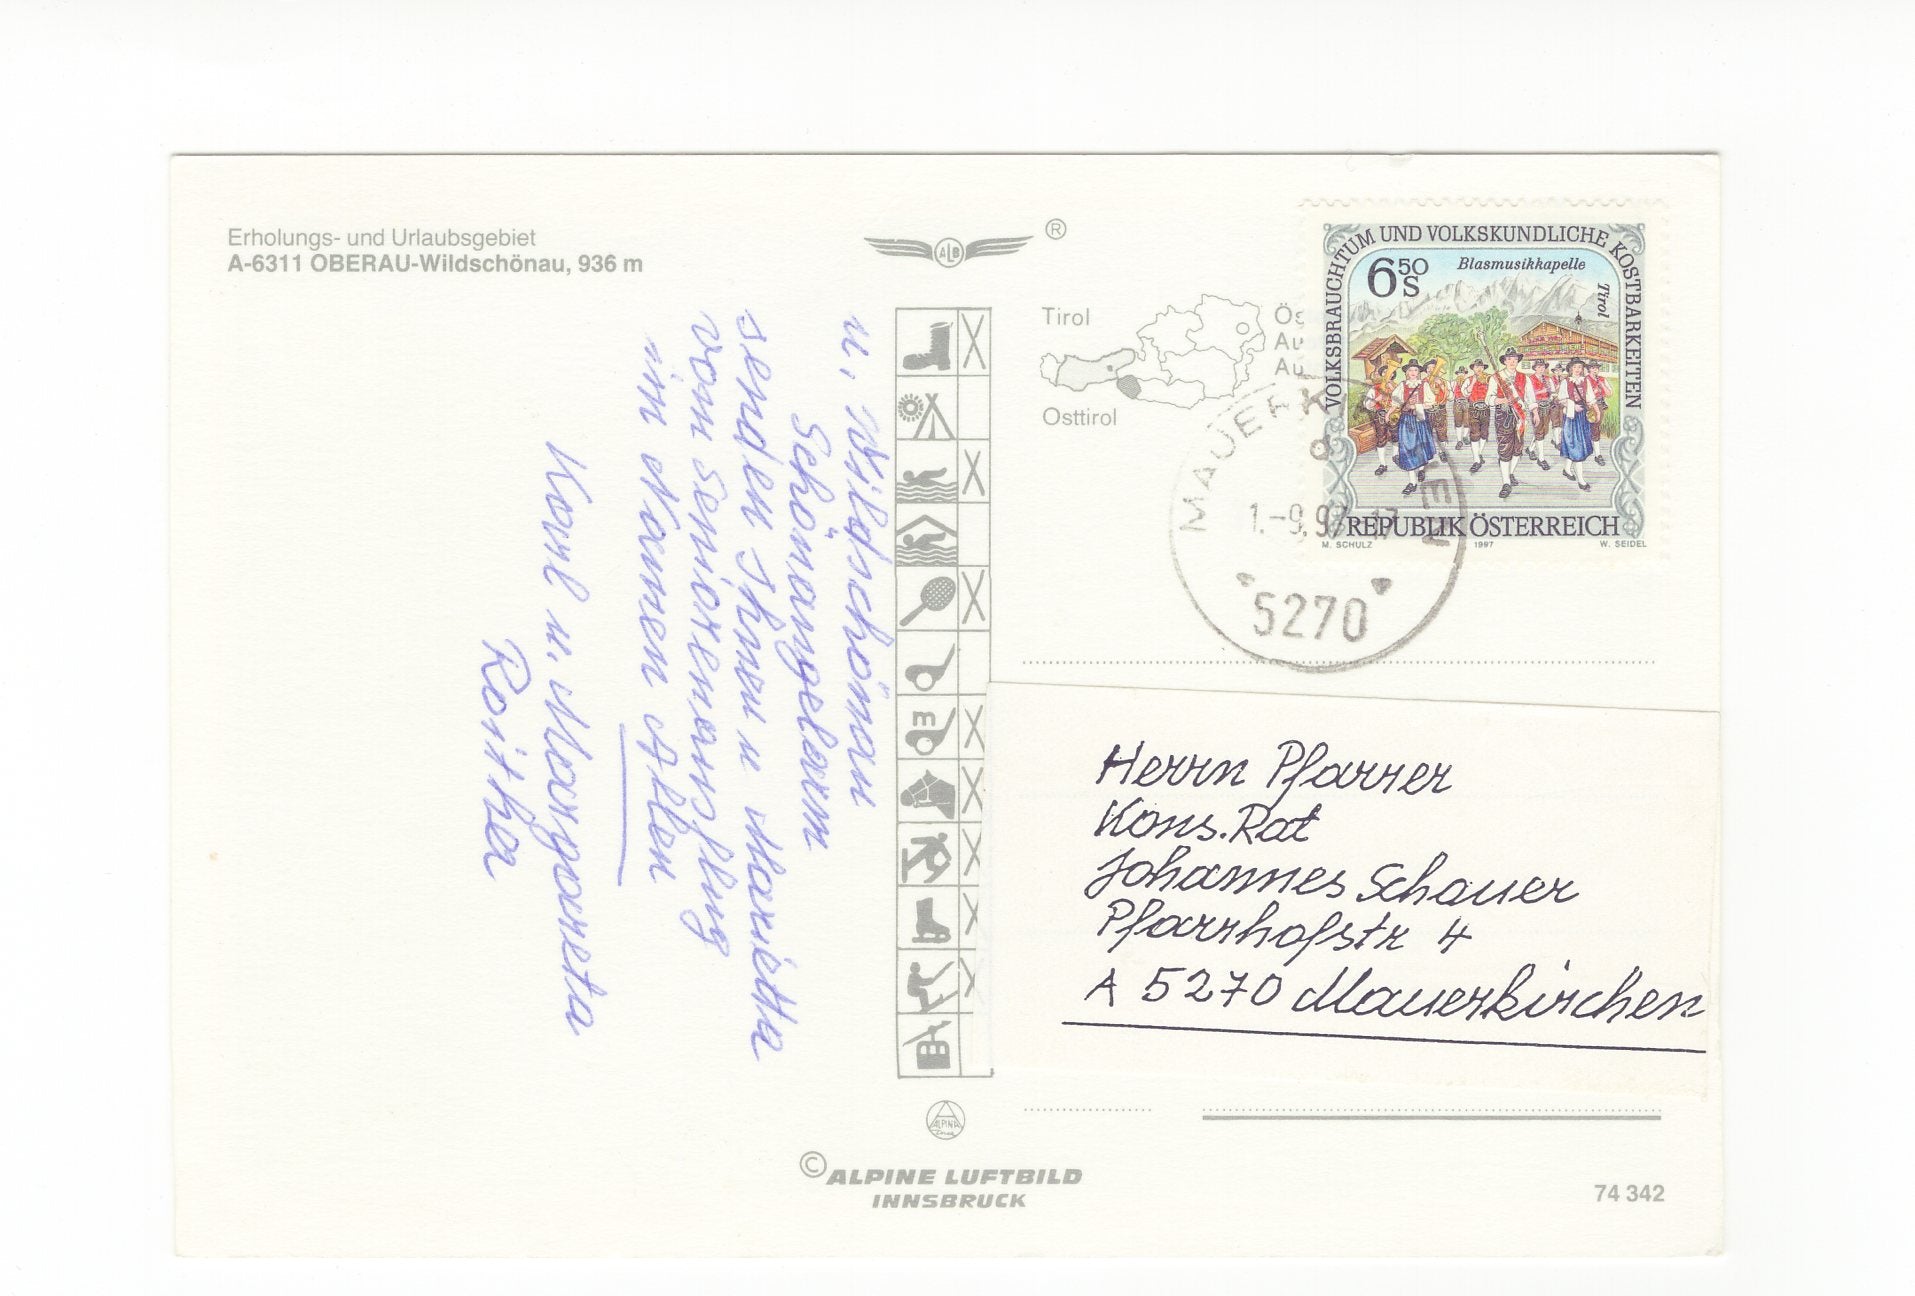 Erholungs- und Urlaubsgebiet
A-6311 OBERAU-Wildschönau, 936 m
ALB
®
u. Wildschönau
Schönangelarm
senden Ihnen u Marietta
vom Seniorenausflug
im Namen Allen
Karl u. Margareta
Roitha
Tirol
Osttirol
Ös
Au
Au
VOLKSBRAUCHTUM UND VOLKSKUNDLICHE KOSTBARKEITEN
6 50 S
Blasmusikkapelle
Tirol
REPUBLIK ÖSTERREICH
M. SCHULZ 1997 W. SEIDEL
MAUERKIRCHEN
1.-9.97-17
5270
Herrn Pfarrer
Kons.Rat
Johannes Schauer
Pfarrhofstr 4
A 5270 Mauerkirchen
ALPINA
© ALPINE LUFTBILD
INNSBRUCK
74 342